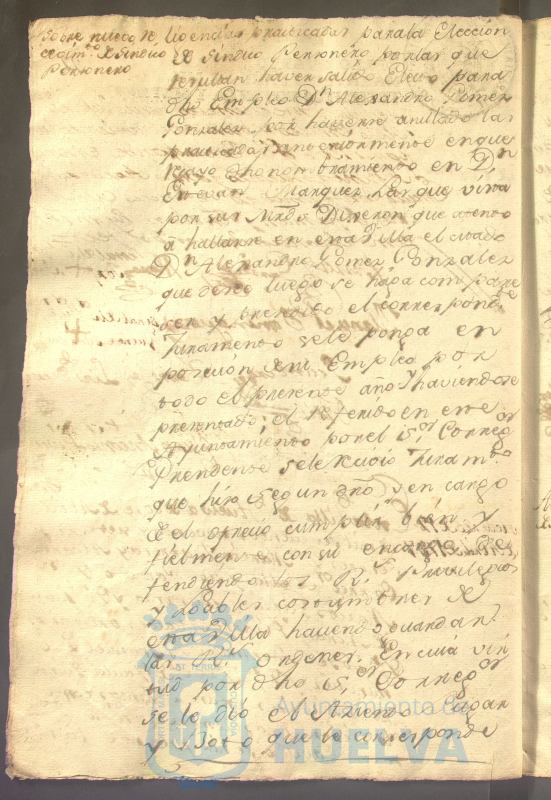 Sobre nuevo
cocim.to de Sindico
Personero
diligencias practicadas para la Eleccion
de Sindico Personero por las que
resultan haver salido Electo para
dho Empleo Dn Alexandro Gomez
Gonzalez por haverse anullado las
practicadas anteriormente en que
recayo nombramiento en Dn
Estevan Marquez, las que vistas
por sus Mrds Dixeron que atento
a hallarse en esta Villa el citado
Dn Alexandro Gomez Gonzalez
que desde luego se haga compare
cer y prestado el correspondte
Juramento se le ponga en
posecion de su Empleo por
todo el presente año, y haviendose
presentado el referido en este
Ayuntamiento por el Sor Correxor
Presidente se le recivio Juramto
que hizo segun dro y en cargo
de el ofrecio cumplir bien y
fielmente con su encargo
fendiendo los Rs Privilegios
y loables costumbres de
esta Villa haciendo guardar
las Rs ordenes. En cuia vir
tud por dho Sor Corregor
se le dio el Asiento Lugar
y Voto que le corresponde
Ayuntamiento de
HUELVA